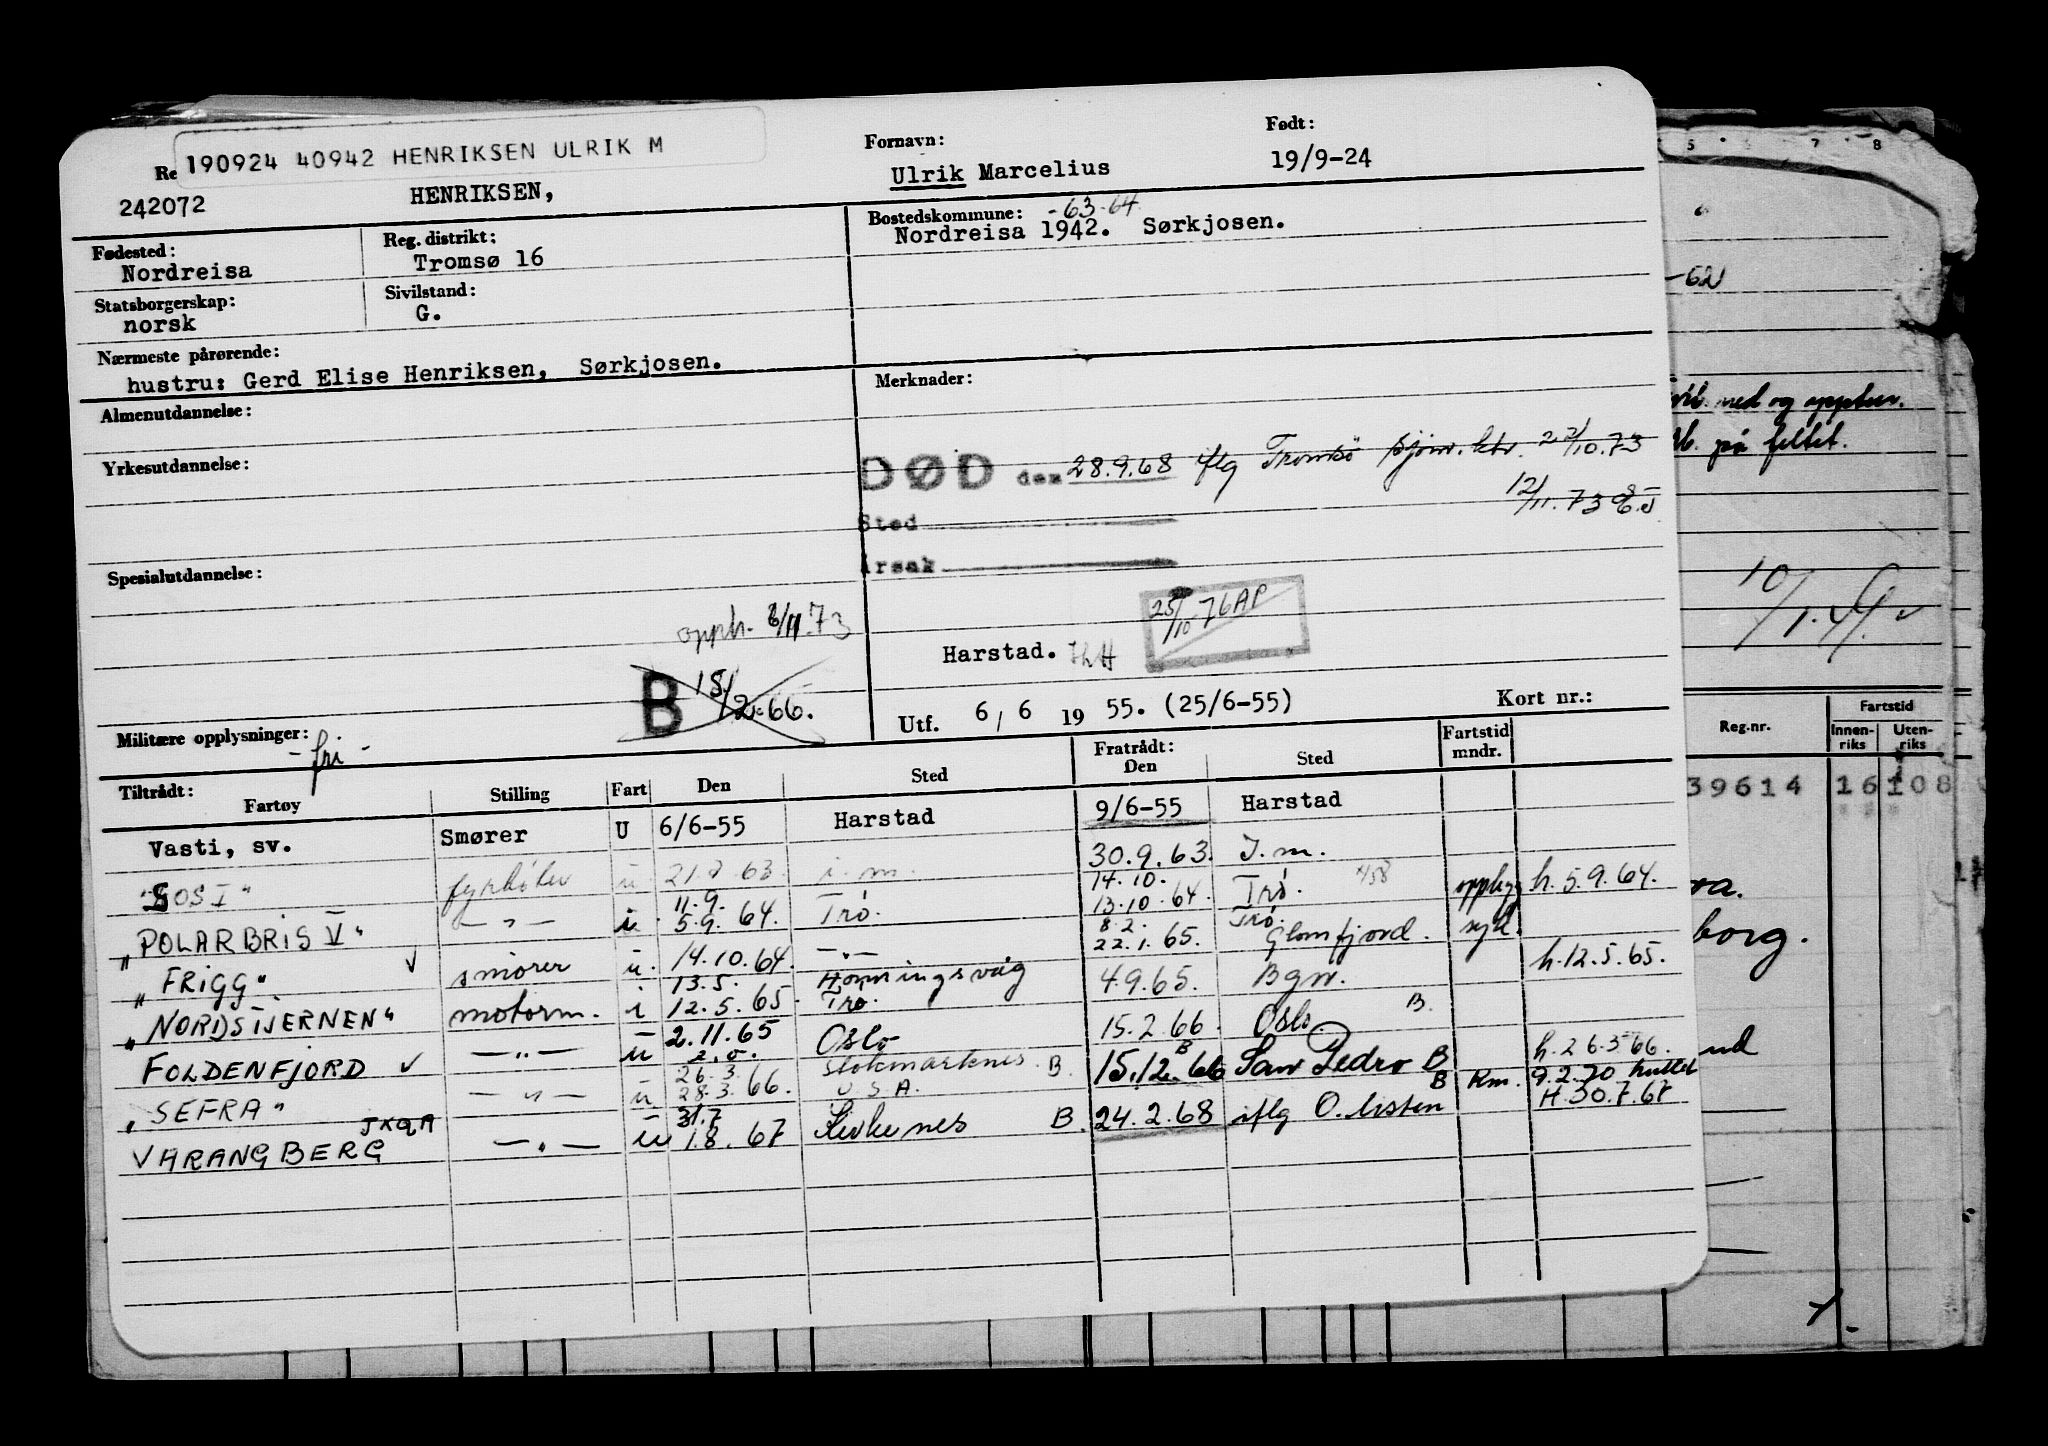 190924 40942 HENRIKSEN ULRIK M
Re
242072
HENRIKSEN,
Fornavn:
Ulrik Marcelius
Født:
19/9-24
Fødested:
Nordreisa
Reg. distrikt:
Tromsø 16
Bostedskommune: -63-64.
Nordreisa 1942. Sørkjosen.
Statsborgerskap:
norsk
Sivilstand:
G.
Nærmeste pårørende:
hustru: Gerd Elise Henriksen, Sørkjosen.
Almenutdannelse:
Merknader:
Yrkesutdannelse:
DØD den 28.9.68 iflg Tromsø sjøm.ktr. 22/10.73
12/11.73
Sted
Årsak
Spesialutdannelse:
opph. 6/11.73
25/10 76 AP
Harstad.
B 15/12.66.
Utf. 6/6 1955. (25/6-55)
Kort nr.:
Militære opplysninger:
- fri -
Tiltrådt:
Fartøy Stilling Fart Den Sted
Fratrådt:
Den Sted
Fartstid mndr.
Vasti, sv. Smører U 6/6-55 Harstad 9/6-55 Harstad
"BOS I" fyrbøter u 63. i.m. 30.9.63. I.m.
"POLARBRIS V" -"- i 11.9. 5.9.64. Trø. 14.10. 13.10.64. Trø. 4/58 opplegg h.5.9.64.
"FRIGG" smører u. 14.10.64. -"- 8.2. 22.1.65. Trø. Glomfjord. syk.
"NORDSTJERNEN" motorm. i 13.5. 12.5.65 Honningsvåg Trø. 4.9.65. Bgn. h.12.5.65.
FOLDENFJORD -"- u 2.11.65 Oslo 15.2.66. Oslo. B.
"SEFRA" -"- u 26.3. 28.3.66. Stokmarknes. U.S.A. B. 15.12.66 San Pedro B h.26.3.66.
VARANGBERG JXQA -"- u 31.7 1.8.67 Kirkenes B. 24.2.68 iflg O. listen B Rm. 9.2.70 H.30.7.67
5 7 8
-62
ned og opptur.
på feltet.
10/1.
Reg.nr.
Fartstid
Innenriks
Utenriks
39614 16 108
borg.